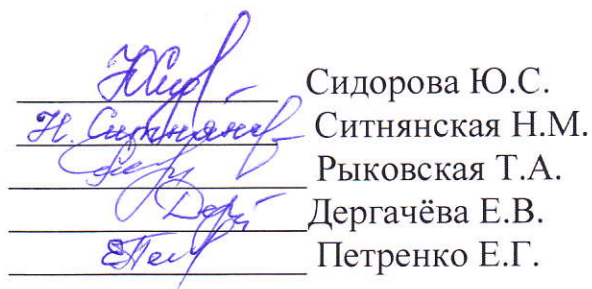 Сидорова Ю.С.
Н. Ситнянс Ситнянская Н.М.
Рыковская Т.А.
Дергачёва Е.В.
Петренко Е.Г.